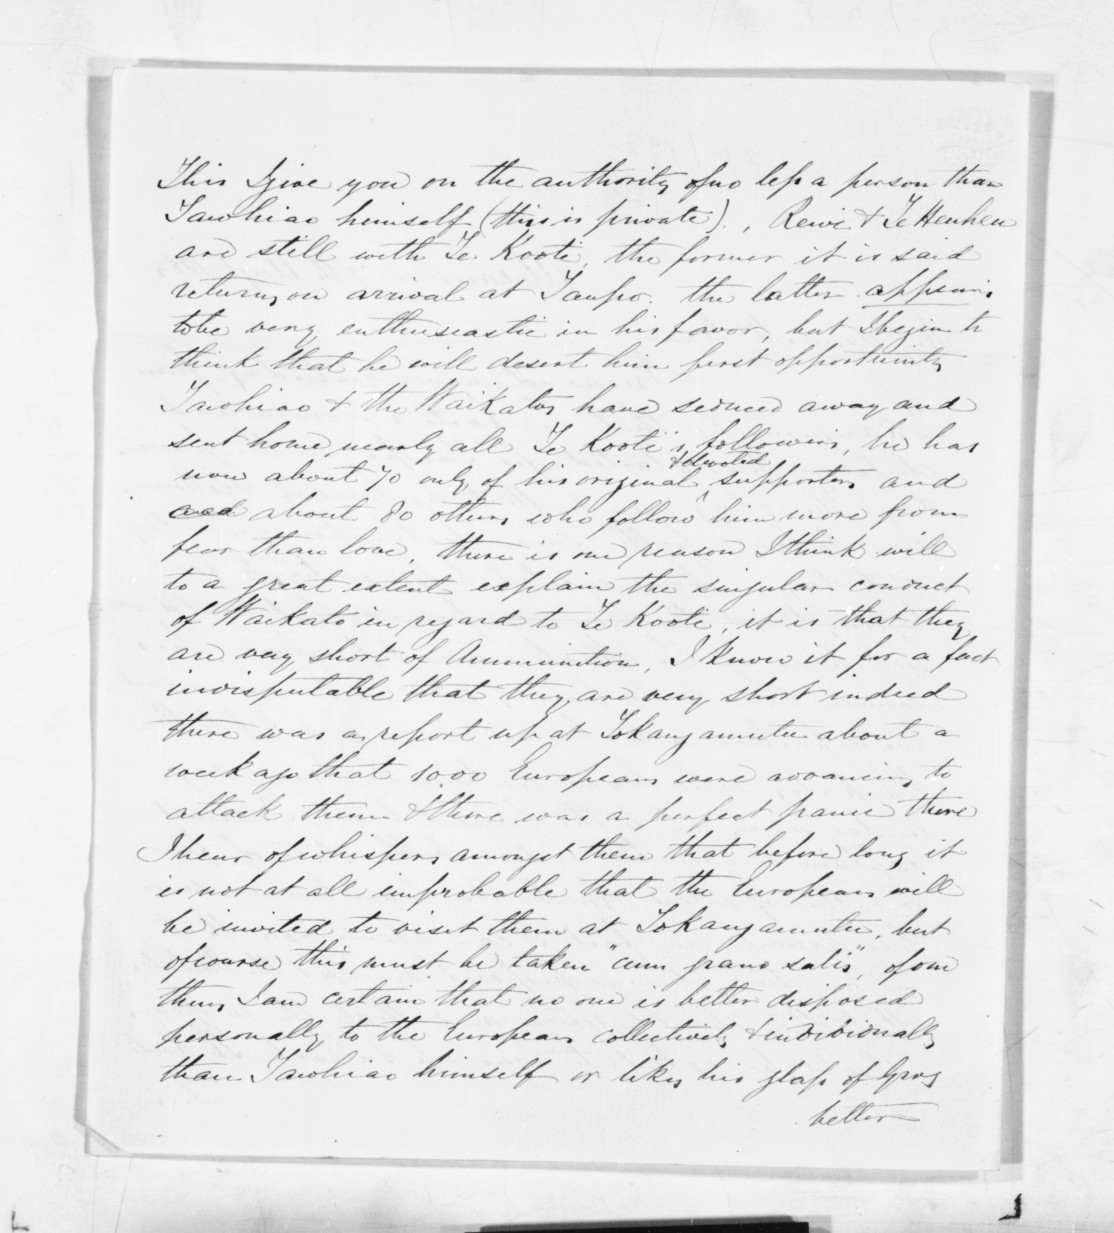 This I give you on the authority of no less a person than
Tawhiao himself (this is private)., Rewi & Te Heuheu
are still with Te Kooti, the former it is said
returns on arrival at Taupo. the latter appears
to be very enthuseastic in his favor, but I begin to
think that he will desert him first opportunity
Tawhiao & the Waikatos have seduced away and
sent home nearly all Te Kooti's followers, he has
now about 70 only of his original & devoted supporters and
and about 80 others who follow him more from
fear than love, there is one reason I think will
to a great extent explain the singular conduct
of Waikato in regard to Te Kooti, it is that they
are very short of Ammunition, I know it for a fact
indisputable that they are very short indeed
there was a report up at Tokangamutu about a
week ago that 1000 Europeans were advancing to
attack them & there was a perfect panic there
I hear of whispers amongst them that before long it
is not at all improbable that the Europeans will
be invited to visit them at Tokangamutu, but
of course this must be taken "cum grano salis", of one
thing I am certain that no one is better disposed
personally to the Europeans collectively & individually
than Tawhiao himself or likes his glass of Grog
better